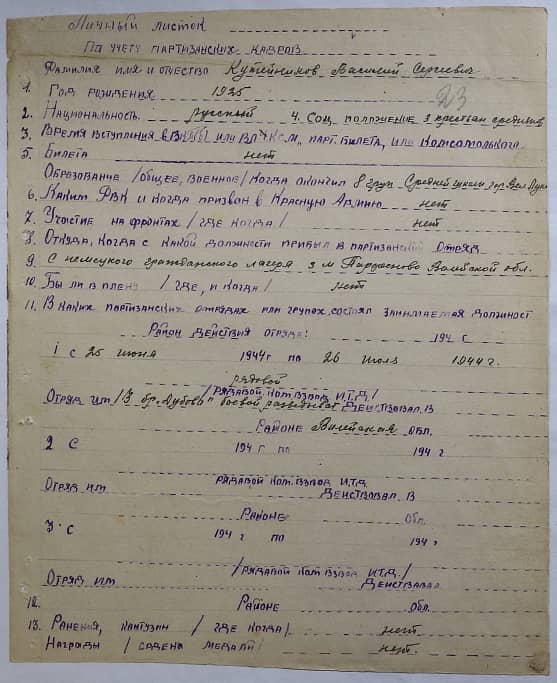 Личный листок
По учету партизанских кадров
Фамилия имя и отчество Кутейников Василий Сергеевич
23
1. Год рождения 1925
2. Национальность русский 4. Соц. положение з крестьян
3. Время вступления в ВКП/б/ или ВЛКСМ, парт. билета, или комсомольского
5. Билета нет
Образование /общее, военное/ когда окончил 8 груп Средней школы гор. Вел. Луки
6. Каким РВК и когда призван в Красную Армию нет
7. Участие на фронтах /где когда/ нет
8. Откуда, когда с какой должности прибыл в партизанский отряд
9. С немецкого гражданского лагеря з м обл.
10. Бы ли в плену /где, и когда/ нет
11. В каких партизанских отрядах или групах, состоял занимаемая должност
Район действия отряда: 194 г
1 с 25 июня 1944г по 26 июля 1944 г.
рядовой
/рядавой ком. взвод и.т.д/
Отряд им /3 бр. Дубова" боевой Действовал в
Районе Вилейская обл.
2 с 194 г по 194 г
рядавой ком. взвод и.т.д
Отряд им Действовал в
Районе Обл.
3. с 194 г по 194 г
/рядавой ком. взвод и.т.д./
Отряд им Действовал
12. Районе обл.
13. Ранения, кантузии /где когда/ нет
Награды /ордена медали/ нет.